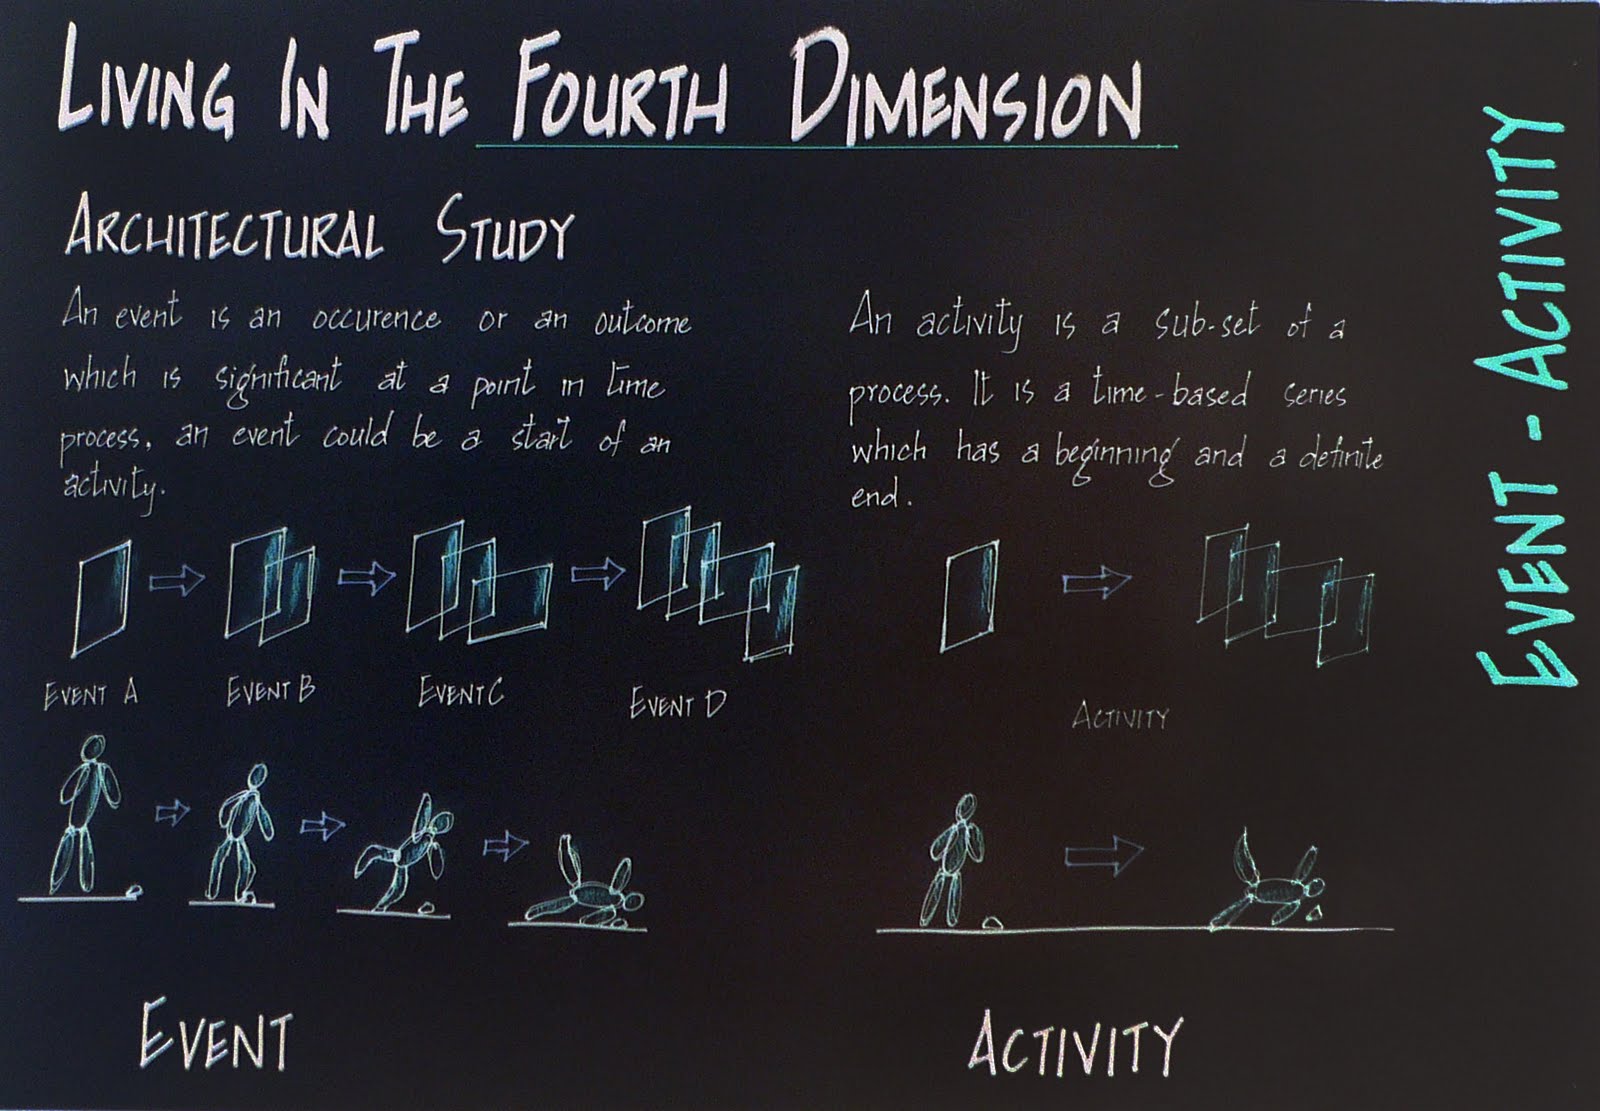 LIVING IN THE FOURTH DIMENSION
ARCHITECTURAL STUDY
An event is an occurence or an outcome
which is significant at a point in time
process, an event could be a start of an
activity.
An activity is a sub-set of a
process. It is a time-based series
which has a beginning and a definite
end.
EVENT A
EVENT B
EVENT C
EVENT D
ACTIVITY
EVENT
ACTIVITY
EVENT - ACTIVITY